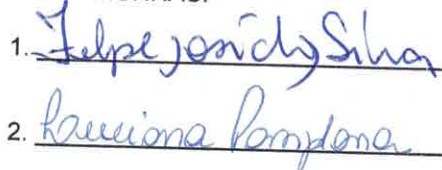 1. Felipe José da Silva
2. Luciana Pamplona